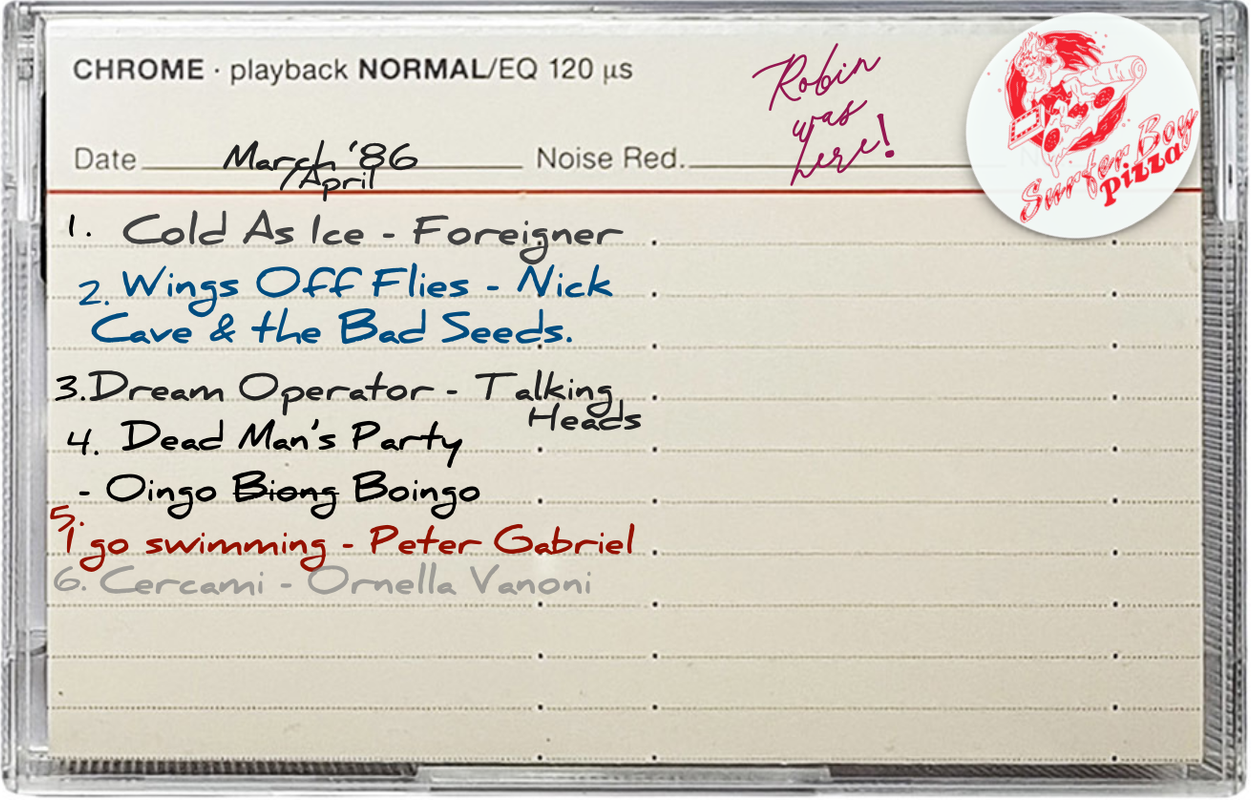 CHROME · playback NORMAL/EQ 120 µs
Robin
was
here!
Surfer Boy
Pizza
Date March '86
/April
Noise Red.
1. Cold As Ice - Foreigner
2. Wings Off Flies - Nick
Cave & the Bad Seeds.
3. Dream Operator - Talking
Heads
4. Dead Man's Party
- Oingo Biong Boingo
5.
I go swimming - Peter Gabriel
6. Cercami - Ornella Vanoni